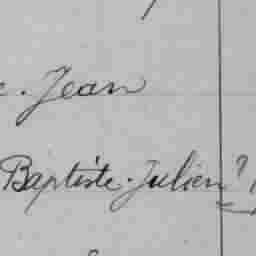 e. Jean
Baptiste. Julien?